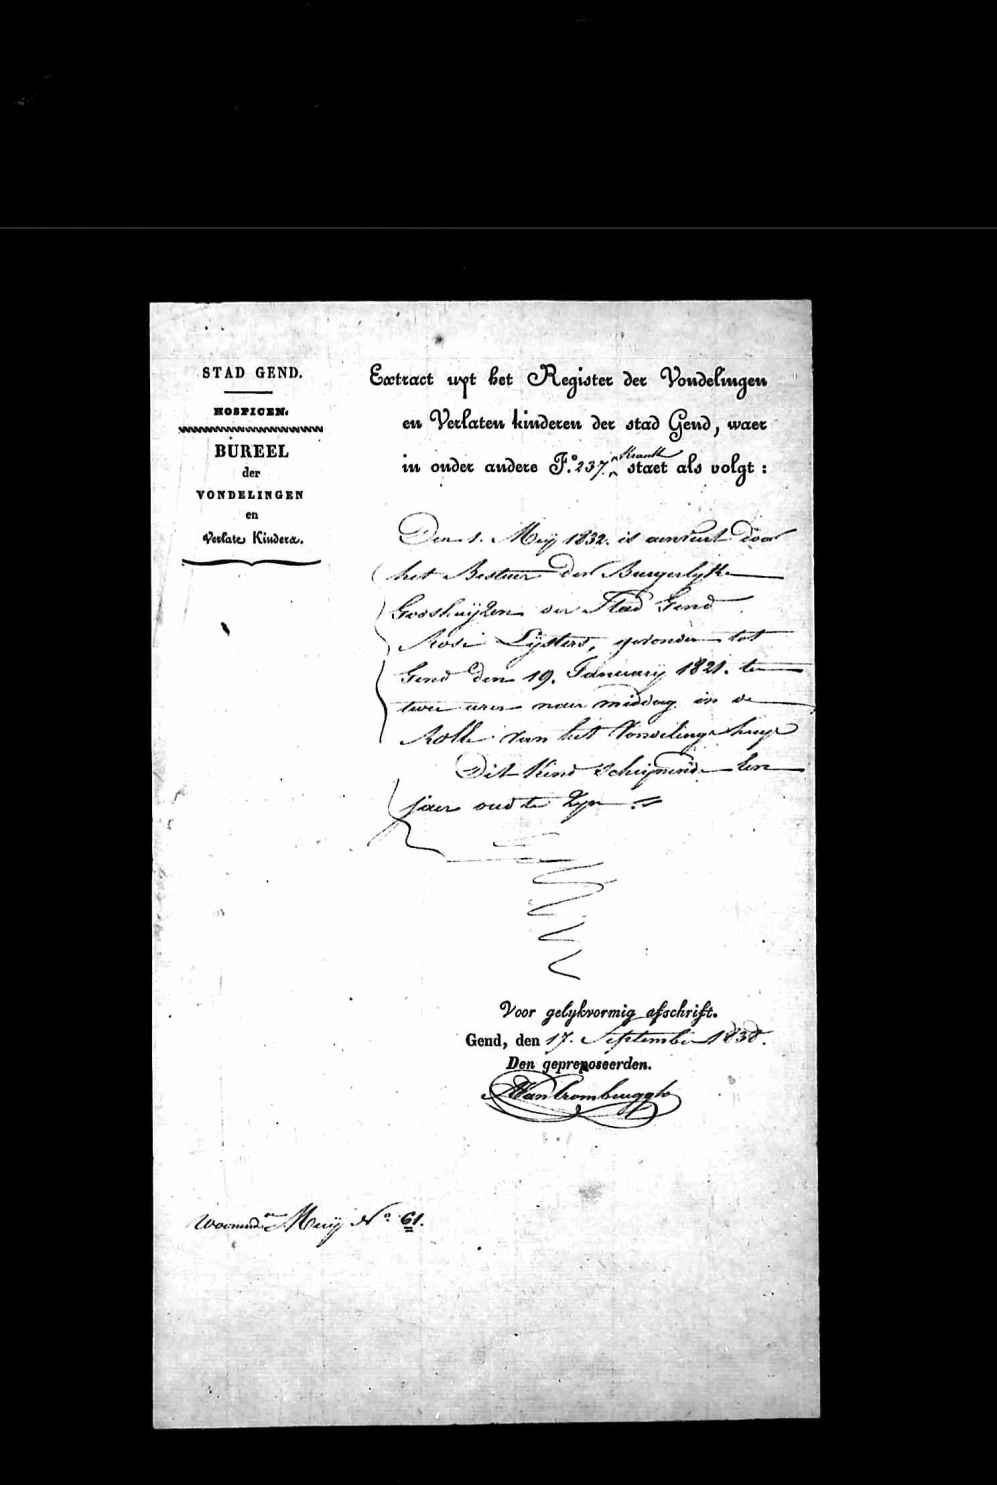 STAD GEND.
HOSPICEN.
BUREEL
der
VONDELINGEN
en
Verlate Kindera.
Extract uyt het Register der Vondelingen
en Verlaten kinderen der stad Gend, waer
in onder andere F.º 237. staet als volgt :
Den 1. Meij 1832. is aenveert door
het Bestuer der Burgerlyke
Godshuijzen der Stad Gend
Rosi Lijsters, gevonden tot
Gend den 19. January 1821. ten
twee uren naer middag in de
Rolle van het Vondelinge huys
Dit Kind schijnende een
jaer oud te Zyn
Voor gelykvormig afschrift.
Gend, den 17. September 1838.
Den gepreposeerden.
Van Crombrugghe
Woonende Meij Nº 61.